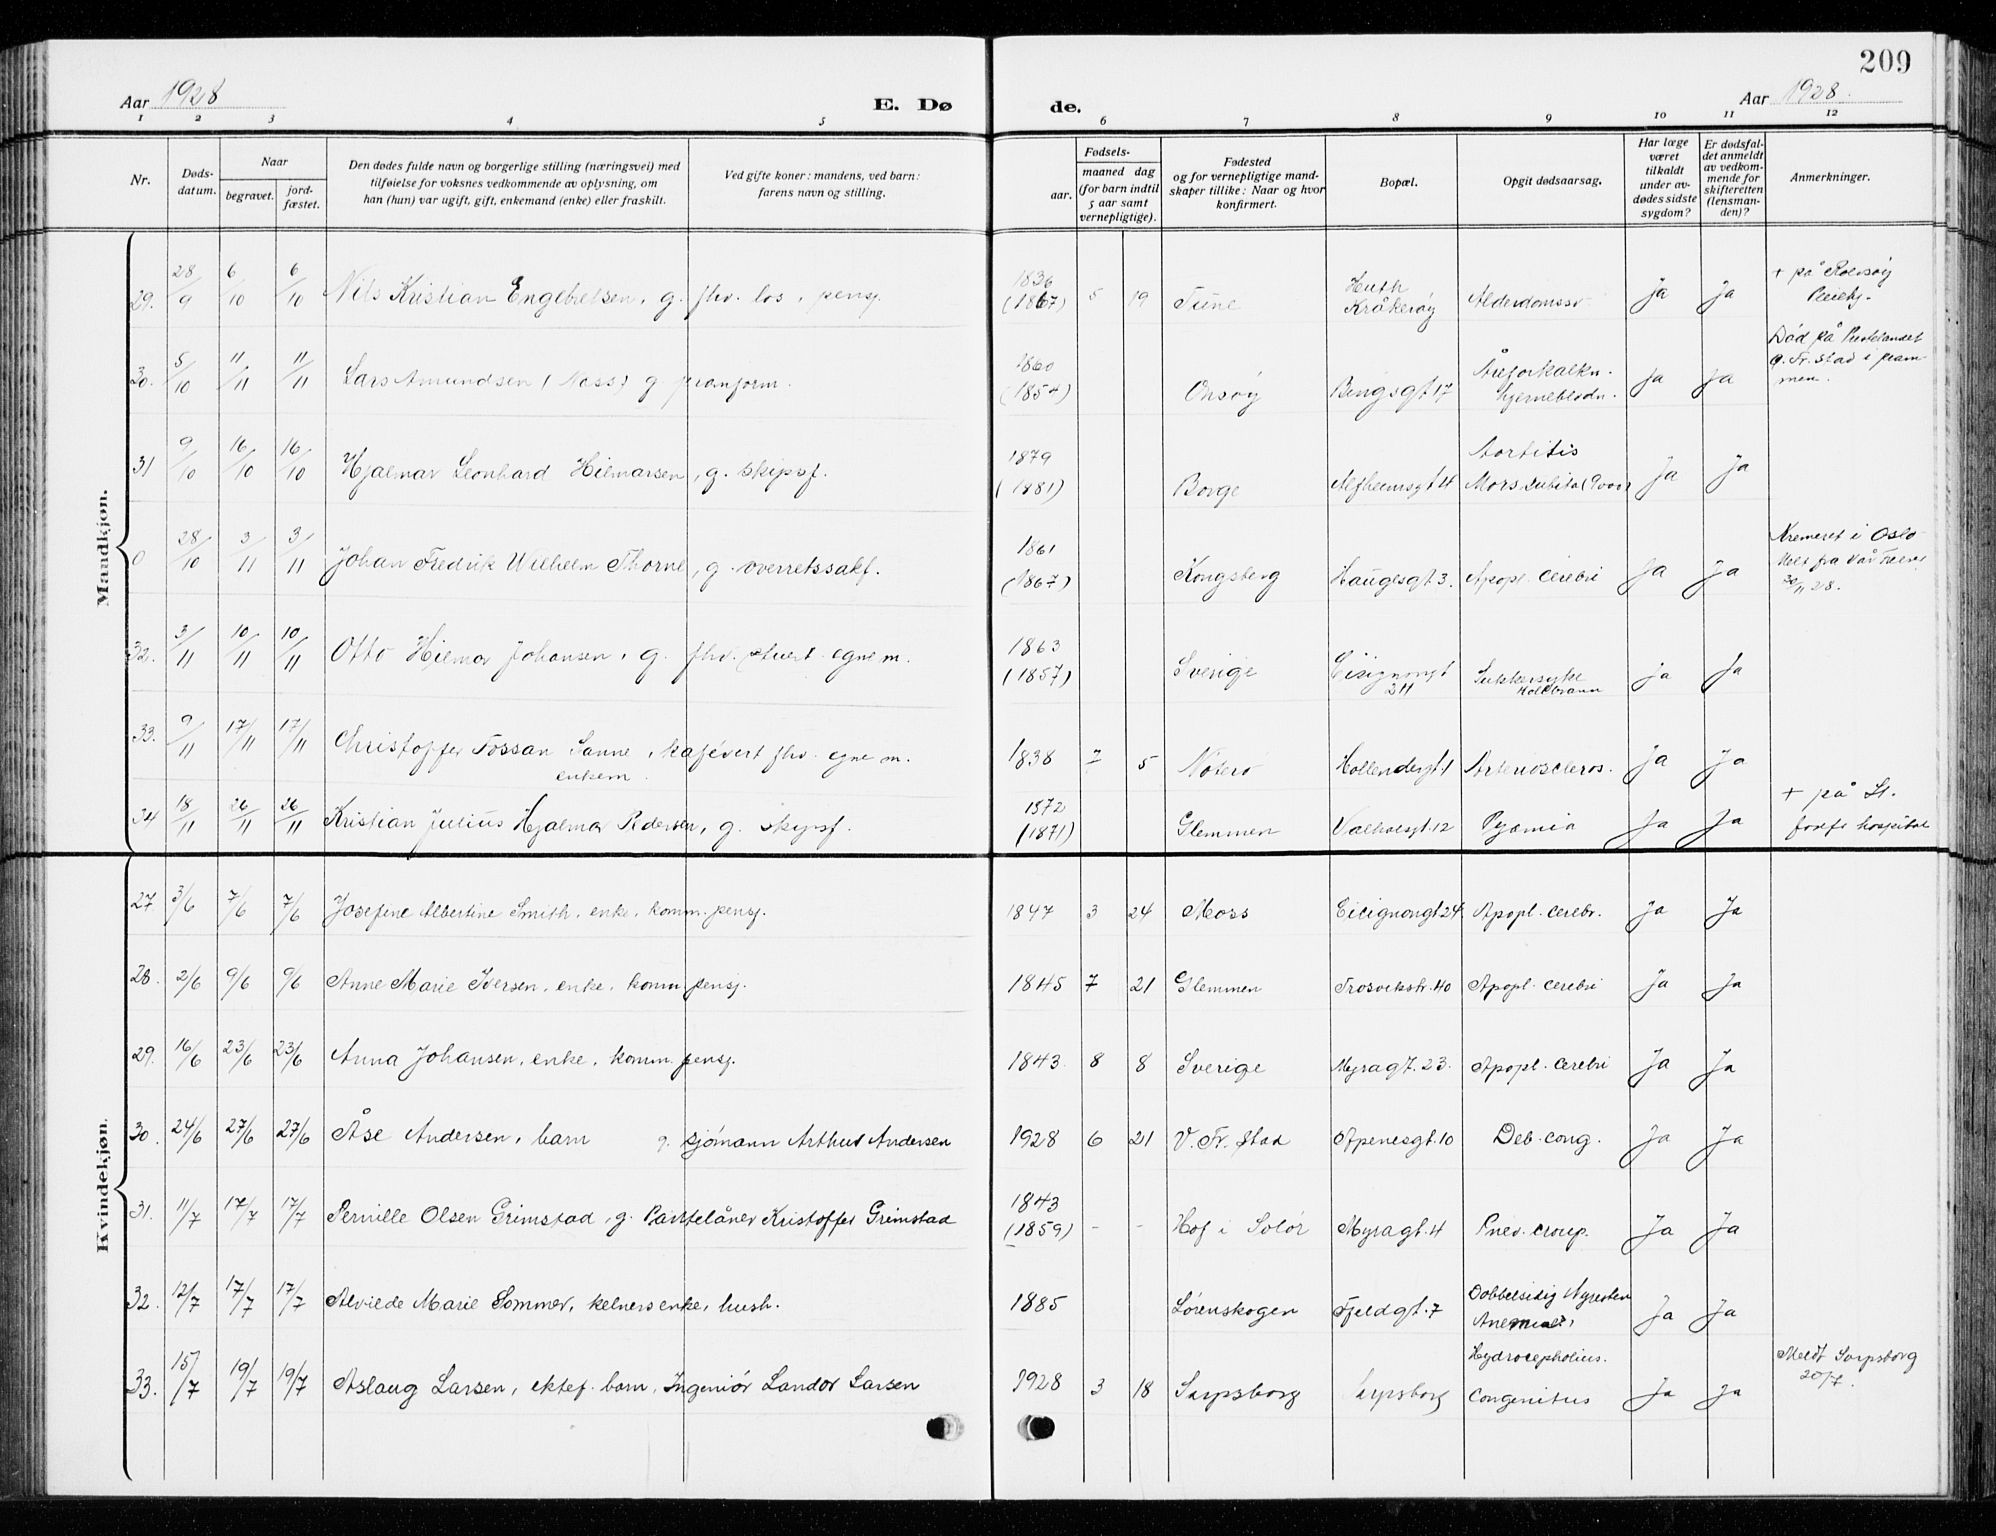 209
Aar 1928
E. Dø
de.
Aar 1928.
1 2 3 4 5 6 7 8 9 10 11 12
Nr.
Døds-
datum.
Naar
begravet.
jord-
fæstet.
Den dødes fulde navn og borgerlige stilling (næringsvei) med
tilføielse for voksnes vedkommende av oplysning, om
han (hun) var ugift, gift, enkemand (enke) eller fraskilt.
Ved gifte koner: mandens, ved barn:
farens navn og stilling.
Fødsels-
aar.
maaned dag
(for barn indtil
5 aar samt
vernepligtige).
Fødested
og for vernepligtige mand-
skaper tillike: Naar og hvor
konfirmert.
Bopæl.
Opgit dødsaarsag.
Har læge
været
tilkaldt
under av-
dødes sidste
sygdom?
Er dødsfal-
det anmeldt
av vedkom-
mende for
skifteretten
(lensman-
den)?
Anmerkninger.
Mandkjøn.
29. 28/9 6/10 6/10 Nils Kristian Engebretsen, g. fhv. los, pensj. 1836 (1867) 5 19 Tune Huth Kråkerøy Alderdomssv. Ja Ja + på Rolvsøy Pleiehj.
30. 5/10 11/11 11/11 Lars Amundsen (Nass) g. pramform. 1860 (1854) Onsøy Bingsgt 17 Åreforkalkn. hjerneblødn. Ja Ja Død på
Fr.stad i pram-
men.
31 9/10 16/10 16/10 Hjalmar Leonhard Hilmarsen, g. skipsf. 1879 (1881) Borge Alfheimsgt 4 Aortitis Mors subita Ja Ja
0 28/10 3/11 3/11 Johan Fredrik Wilhelm Thorne, g. overretssakf. 1861 (1867) Kongsberg Haugesgt 3. Apopl. cerebri Ja Ja Kremeret i Oslo
fra Vår Frelser 28.
32. 3/11 10/11 10/11 Otto Hjemar Johansen, g. fhv. stuert egne m. 1863 (1857) Sverige Cicignongt 24 Sukkersyke Koldbrann Ja Ja
33. 9/11 17/11 17/11 Christoffer Fossan Sanne, kafévert fhv. egne m. enkem. 1838 7 5 Nøterø Hollendergt 1 Arterioscleros. Ja Ja
34 18/11 26/11 26/11 Kristian Julius Hjalmar Pedersen, g. skipsf. 1872 (1871) Glemmen Valhalsgt. 12 Pyæmia Ja Ja + på St.
Josefs hospital
Kvindekjøn.
27 3/6 7/6 7/6 Josefine Albertine Smith, enke, komm. pensj. 1847 3 24 Moss Cicignongt 24 Apopl. cerebr. Ja Ja
28. 2/6 9/6 9/6 Anne Marie Iversen, enke, komm. pensj. 1845 7 21 Glemmen Trosvikstr. 40 Apopl. cerebri Ja Ja
29. 16/6 23/6 23/6 Anna Johansen, enke, komm. pensj. 1843. 8 8 Sverige Myragt. 23. Apopl. cerebri Ja Ja
30. 24/6 27/6 27/6 Åse Andersen, barn g. sjømann Arthur Andersen 1928 6 21 V. Fr. stad Apenesgt. 10 Deb. cong. Ja Ja
31. 11/7 17/7 17/7 Pernille Olsen Grimstad, g. Pantelåner Kristoffer Grimstad 1843 (1859) - - Hof i Solør Myragt. 4 Pnev. croup. Ja Ja
32. 12/7 17/7 17/7 Alvilde Marie Sommer, kelners enke, hush. 1885 Lørenskogen Fjeldgt. 7 Dobbelsidig Nyresten Anemie Ja Ja
33. 15/7 19/7 19/7 Aslaug Larsen, ektef. barn, Ingeniør Landor Larsen 1928 3 18 Sarpsborg Sarpsborg Hydrocepholius. Congenitus Ja Ja Meldt Sarpsborg
20/7.